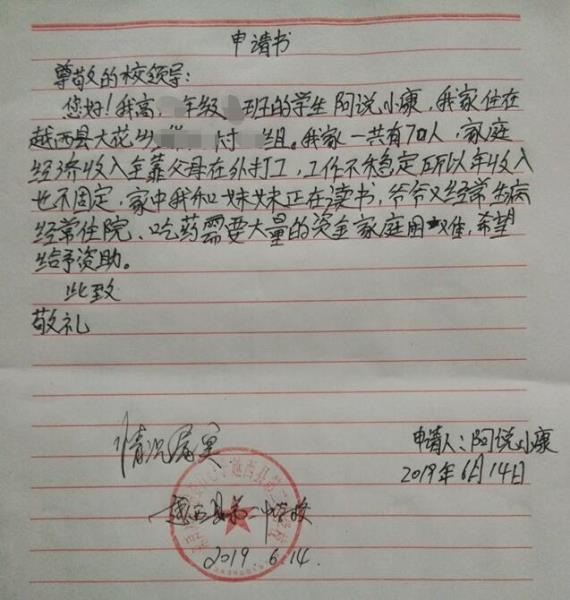 申请书
尊敬的校领导:
您好!我高 年级 班的学生阿说小康,我家住在
越西县大花乡 村 组。我家一共有7口人,家庭
经济收入全靠父母在外打工,工作不稳定所以年收入
也不固定,家中我和妹妹正在读书,爷爷又经常生病
经常住院、吃药需要大量的资金家庭困难,希望
给予资助。
此致
敬礼
申请人:阿说小康
2019年6月14日
情况属实
越西县第二中学校
2019.6.14.